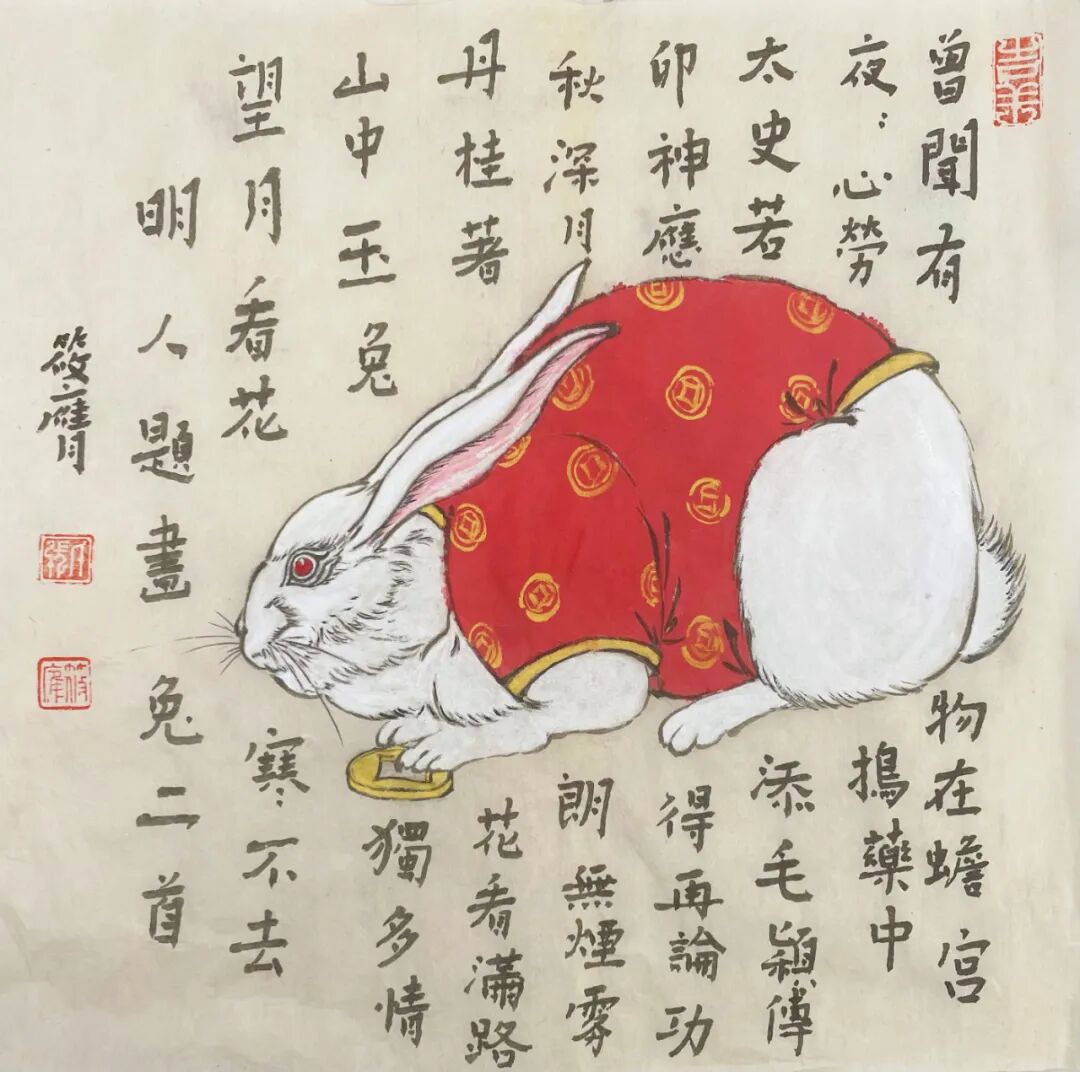 吉羊
曾聞有物在蟾宫
夜:心勞搗藥中
太史若添毛穎傳
卯神應得再論功
秋深月朗無煙雾
丹桂著花看滿路
山中玉兔獨多情
望月看花寒:不去
明人題畫兔二首